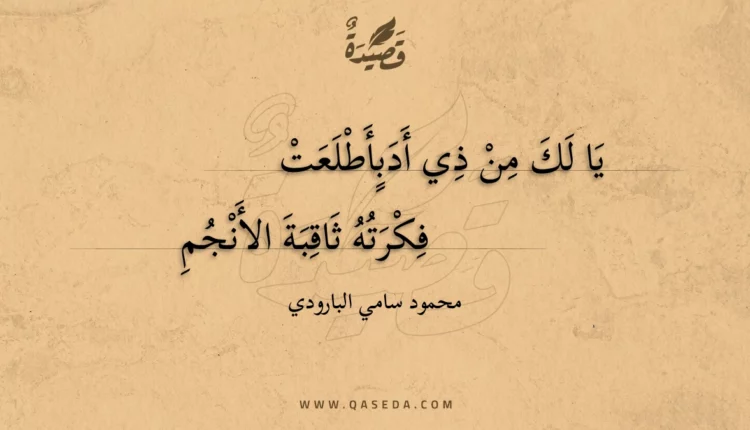 قَصِيدَةٌ
يَا لَكَ مِنْ ذِي أَدَبٍأَطْلَعَتْ
فِكْرَتُهُ ثَاقِبَةَ الأَنْجُمِ
محمود سامي البارودي
WWW.QASEDA.COM